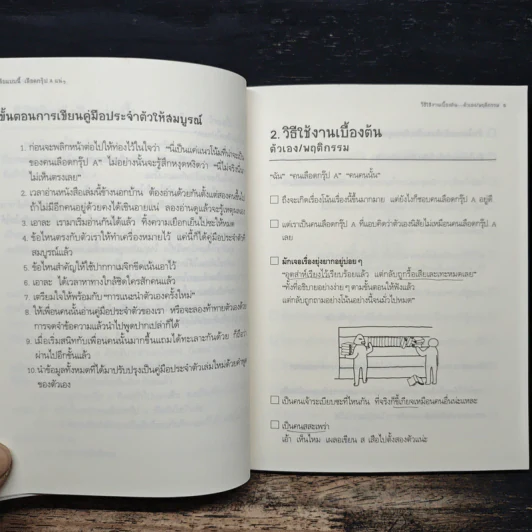 ขั้นตอนการเขียนคู่มือประจำตัวให้สมบูรณ์
1. ก่อนจะพลิกหน้าต่อไปให้ท่องไว้ในใจว่า "นี่เป็นแค่แนวโน้มที่น่าจะเป็น
ของคนเลือดกรุ๊ป A" ไม่อย่างนั้นจะรู้สึกหงุดหงิดว่า
ไม่เห็นตรงเลย"
2. เวลาอ่านหนังสือเล่มนี้ข้างนอกบ้าน ต้องอ่านด้วยกันตั้งแต่สองคนขึ้นไป
ถ้าไม่มีอีกคนอยู่ด้วยคงได้เขินอายแน่ ลองอ่านดูแล้วจะรู้เหตุผลเอง
3. เอาละ เรามาเริ่มอ่านกันได้แล้ว ทิ้งความเยือกเย็นไปซะให้หมด
4. ข้อไหนตรงกับตัวเราให้ทำเครื่องหมายไว้ แค่นี้ก็ได้คู่มือประจำตัวที่
สมบูรณ์แล้ว
5. ข้อไหนสำคัญให้ใช้ปากกาเมจิกขีดเน้นเอาไว้
6. เอาละ ได้เวลาหาทางใกล้ชิดใครสักคนแล้ว
7. เตรียมใจให้พร้อมกับ "การแนะนำตัวเองครั้งใหม่"
8. ให้เพื่อนคนนั้นอ่านคู่มือประจำตัวของเรา หรือจะลองทำทายตัวเองด้วย
การจดจำข้อความแล้วนำไปพูดปากเปล่าก็ได้
9. เมื่อเริ่มสนิทกับเพื่อนคนนั้นมากขึ้นแถมได้ทะเลาะกันด้วย ก็ถือว่า
ผ่านไปอีกขั้นแล้ว
10. นำข้อมูลทั้งหมดที่ได้มาปรับปรุงเป็นคู่มือประจำตัวเล่มใหม่ด้วยคำพูด
ของตัวเอง
วิธีใช้งานเบื้องต้น...ตัวเอง/พฤติกรรม 9
2. วิธีใช้งานเบื้องต้น
ตัวเอง/พฤติกรรม
"ฉัน" "คนเลือดกรุ๊ป A" "คนคนนั้น"
ถึงจะเกิดเรื่องโน้นเรื่องนี้ขึ้นมากมาย แต่ยังไงก็ชอบคนเลือดกรุ๊ป A อยู่ดี
แต่เราเป็นคนเลือดกรุ๊ป A ที่แอบคิดว่าตัวเองนิสัยไม่เหมือนคนเลือดกรุ๊ป A
เลย
มักเจอเรื่องยุ่งยากอยู่บ่อย ๆ
"อุตส่าห์เรียงไว้เรียบร้อยแล้ว แต่กลับถูกรื้อเสียเละเทะหมดเลย"
"ทั้งที่อธิบายอย่างง่าย ๆ ตามขั้นตอนให้ฟังแล้ว
แต่กลับถูกถามอย่างโน้นอย่างนี้จนมั่วไปหมด"
เป็นคนเจ้าระเบียบซะที่ไหนกัน ที่จริงก็ขี้เกียจเหมือนคนอื่นน่ะแหละ
เป็นคนสสะเพร่า
เอ๊า เห็นไหม เผลอเขียน ส เสือไปตั้งสองตัวแน่ะ